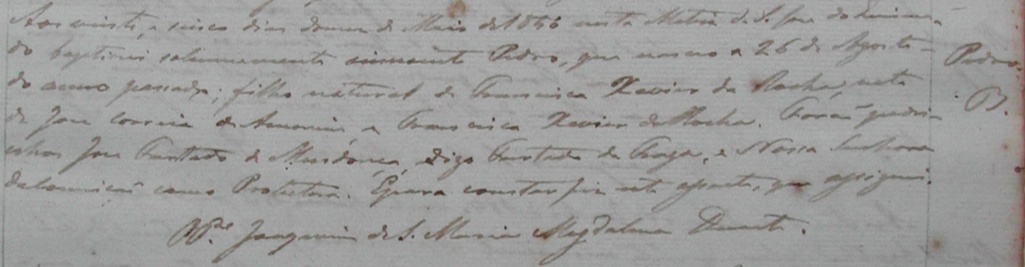 Aos vinte, e cinco dias do mez de Maio de 1866 nesta Matriz de S. Jose do
do baptizei solemnemente innocente Pedro, que nasceo a 26 de Agosto
Pedro.
do anno passado; filho natural de Francisca Xavier da Rocha, neto
B.
de Jose Correia de Amorim e Francisca Xavier da Rocha. Forão padri-
nhos Jose Furtado de Mendonça, digo Furtado de Fraga, e Nossa Senhora
da Conceicão como Protetora. E para constar fiz este assento, que assignei.
Joaquim de S. Maria Magdalena Duarte.